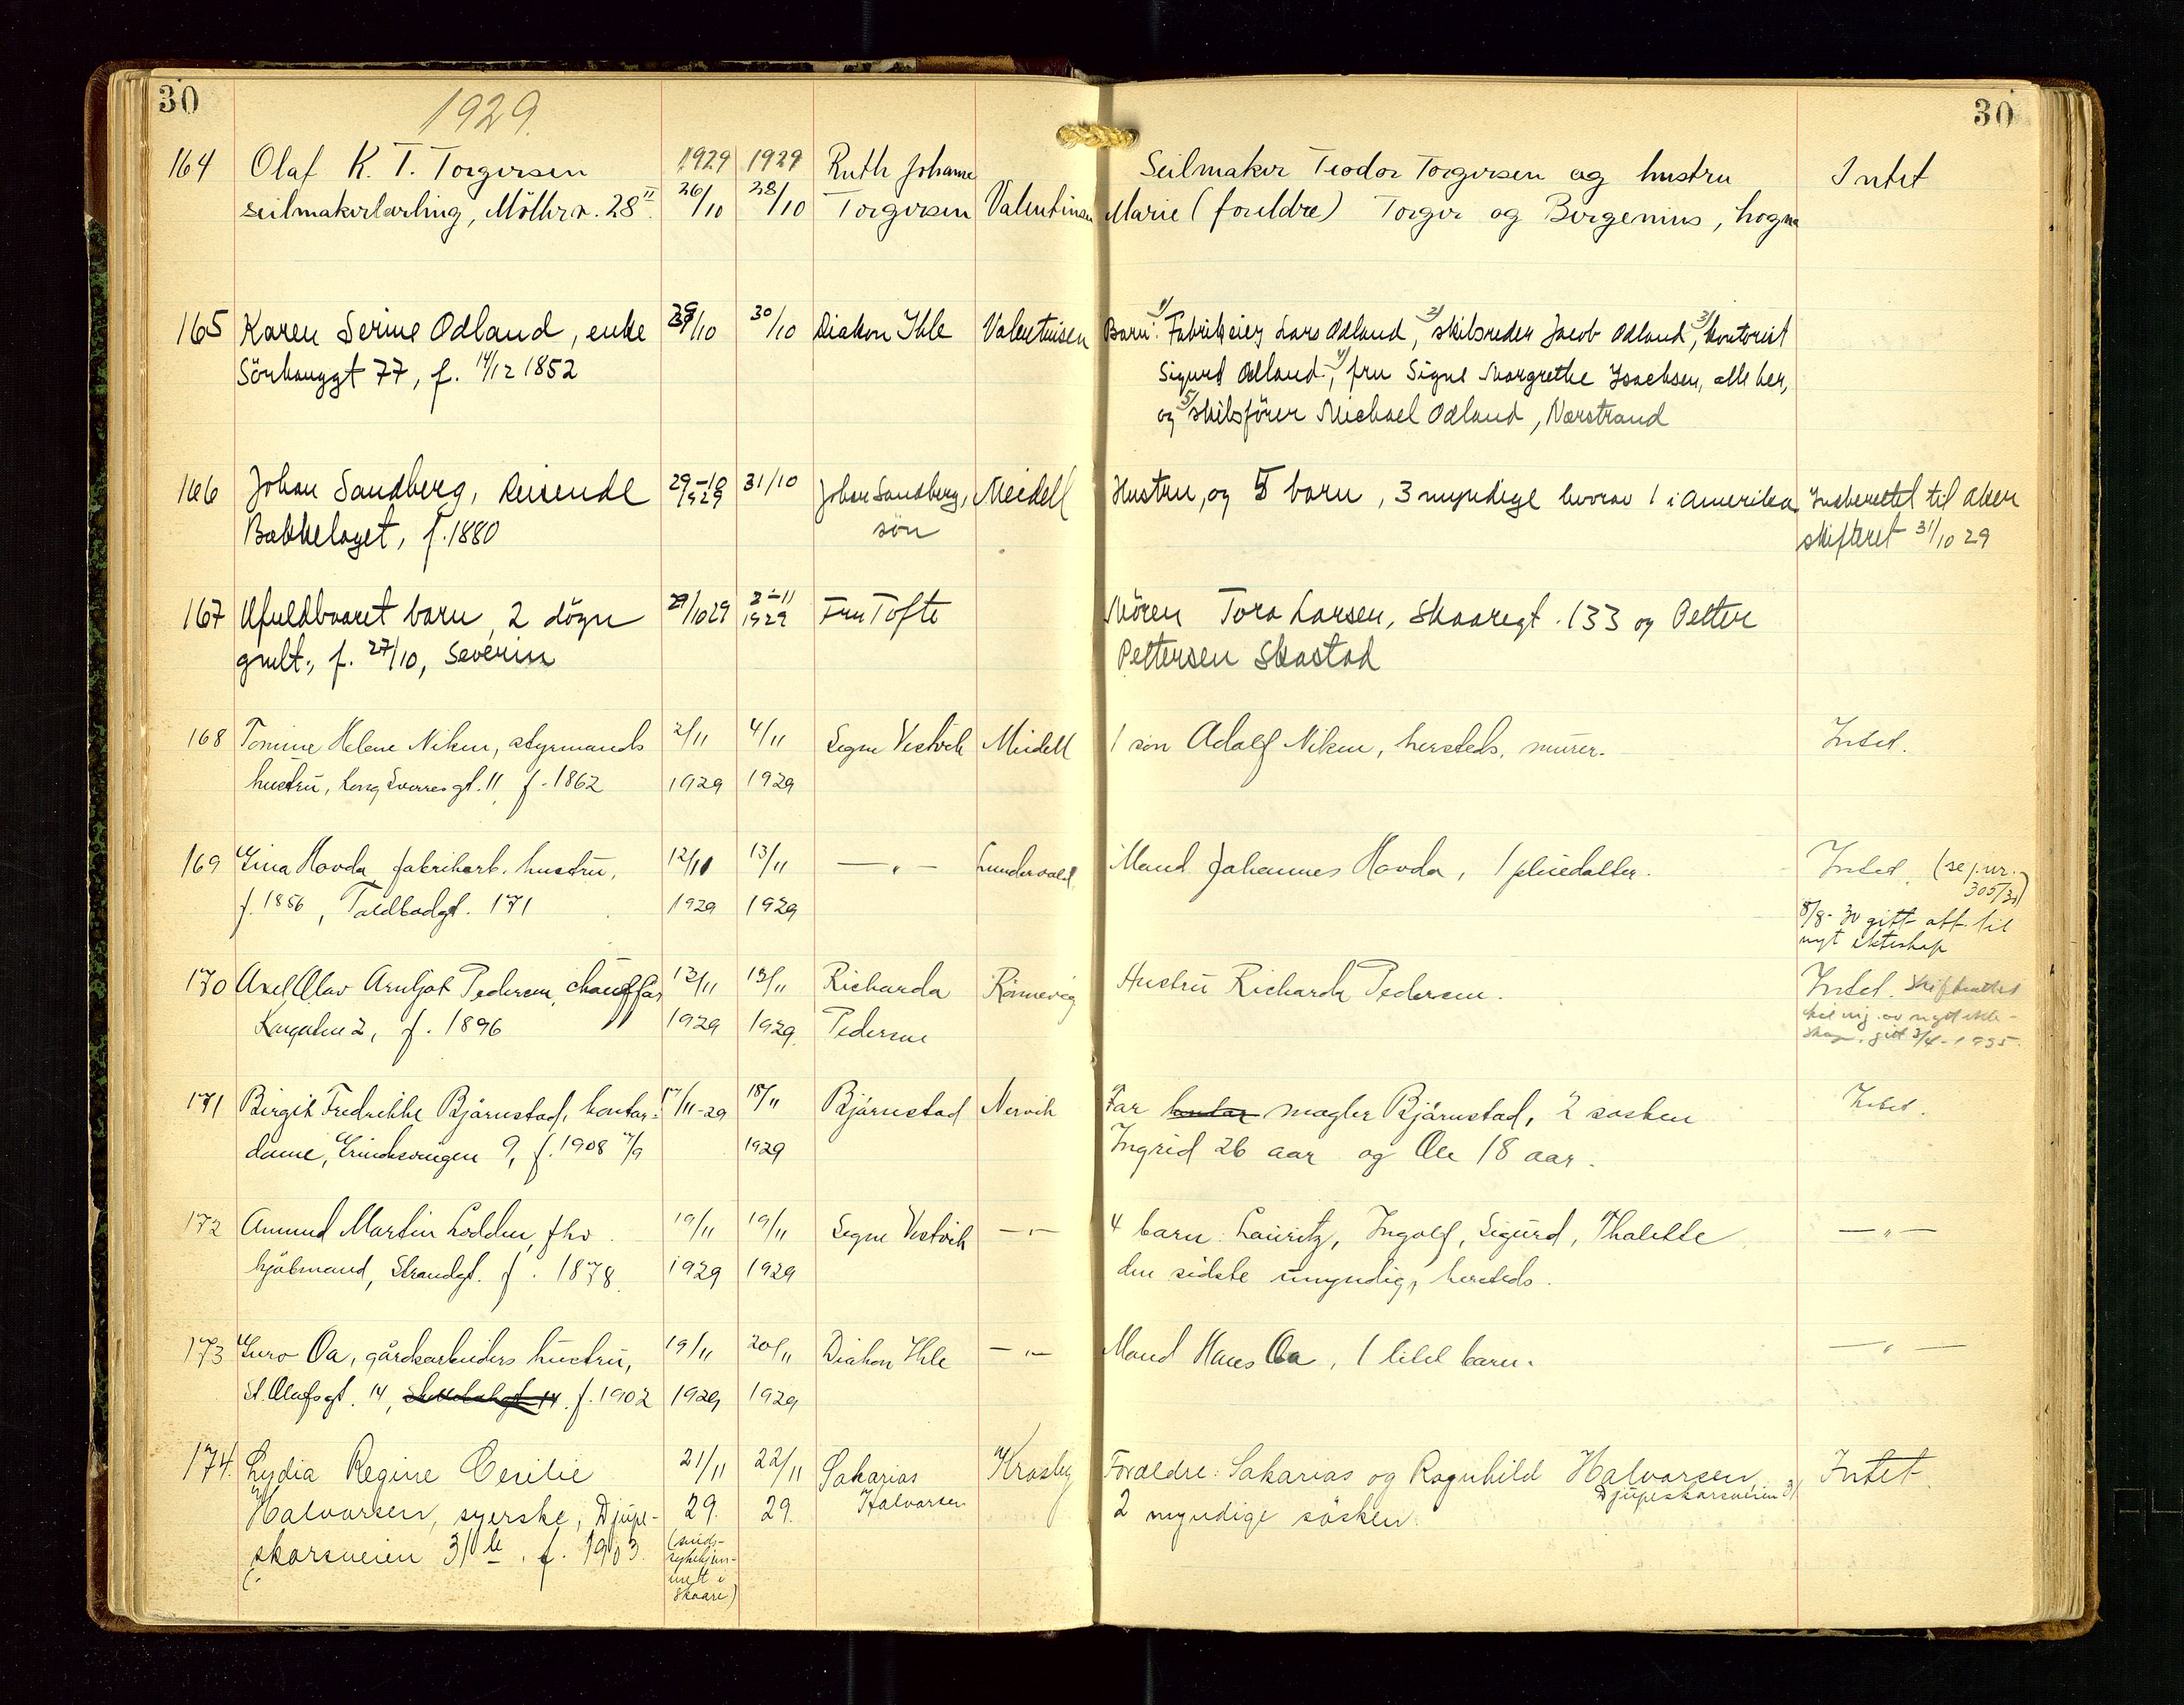 30
1929.
30
164 Olaf K. T. Torgersen 1929 1929 Ruth Johanne Seilmaker Teodor Torgersen og hustru Intet
seilmakerlærling, Möller v. 28 II. 26/10 28/10 Torgersen Valentinsen Marie (foreldre) Torger og Bergenius, hogna
165 Karen Serine Odland, enke 29/10 30/10 Diakon Ihle Valentinsen Barn: 1/ Fabrikeier Lars Odland, 2/ skibsreder Jacob Odland, 3/ kontorist
Sörhauggt 77, f. 14/12 1852 Sigurd Odland, 4/ fru Signe Margrethe Isachsen, alle her,
og 5/ skibsförer Michael Odland, Nærstrand
166 Johan Sandberg, Reisende 29-10 31/10 Johan Sandberg, Meidell Hustru, og 5 barn, 3 myndige hvorav 1 i Amerika Indberettet til Aker
Bækkelaget, f. 1880 1929 sön skifteret 31/10 29
167 Ufuldbaaret barn, 2 dögn 29/10 29 2-11 Fru Tofte Moren Tora Larsen, Skaaregt. 133 og Petter
gmlt., f. 27/10, Severin 1929 Pettersen Skastad
168 Tomine Helene Niken, styrmands 2/11 4/11 Signe Vestvik Meidell 1 søn Adolf Niken, hersteds, murer. Intet.
hustru, Kong Sverresgt. 11, f. 1862 1929 1929
169 Gina Hovda, fabrikarb. hustru, 12/11 13/11 — " — Lundervold Mand Johannes Hovda, 1 pleiedatter. Intet. (se j.nr.
305/30)
f. 1856, Toldbodgt. 171 1929 1929 8/8-30 gitt att. til
nyt ekteskap
170 Axel Olav Arnljot Pedersen, chauffør 12/11 13/11 Richarda Rönnevig Hustru Richarda Pedersen. Intet. Skifteattest
f. 1896 1929 1929 Pedersen til nyt ekte-
skap, gitt 3/4-1935.
171 Birgit Fredrikke Bjørnestad, kontor- 17/11-29 18/11 Bjørnestad Nervik Far kontor megler Bjørnestad, 2 søsken Intet.
dame, 9, f. 1908 7/9 1929 Ingrid 26 aar og Ole 18 aar.
172 Amund Martin Lodden, fhv. 19/11 19/11 Signe Vestvik — " — 4 barn: Lauritz, Ingolf, Sigurd, Thalette — " —
kjøbmand, Strandgt. f. 1878 1929 1929 den sidste umyndig, hersteds.
173 Guro Oa, gårdsarbeiders hustru, 19/11 20/11 Diakon Ihle — " — Mand Hans Oa, 1 litet barn. — " —
St. Olafsgt. 14, f. 1902 1929 1929
174. Lydia Regine Cecilie 21/11 22/11 Sakarias Krosby Foraeldre: Sakarias og Ragnhild Halvorsen, Intet.
Djupeskarsveien 31
Halvorsen, syerske, Djupe- 29. 29. Halvorsen 2 myndige søsken.
skarsveien 31 b. f. 1903.
(sinds-
sykehjem-
met i
Skaare)